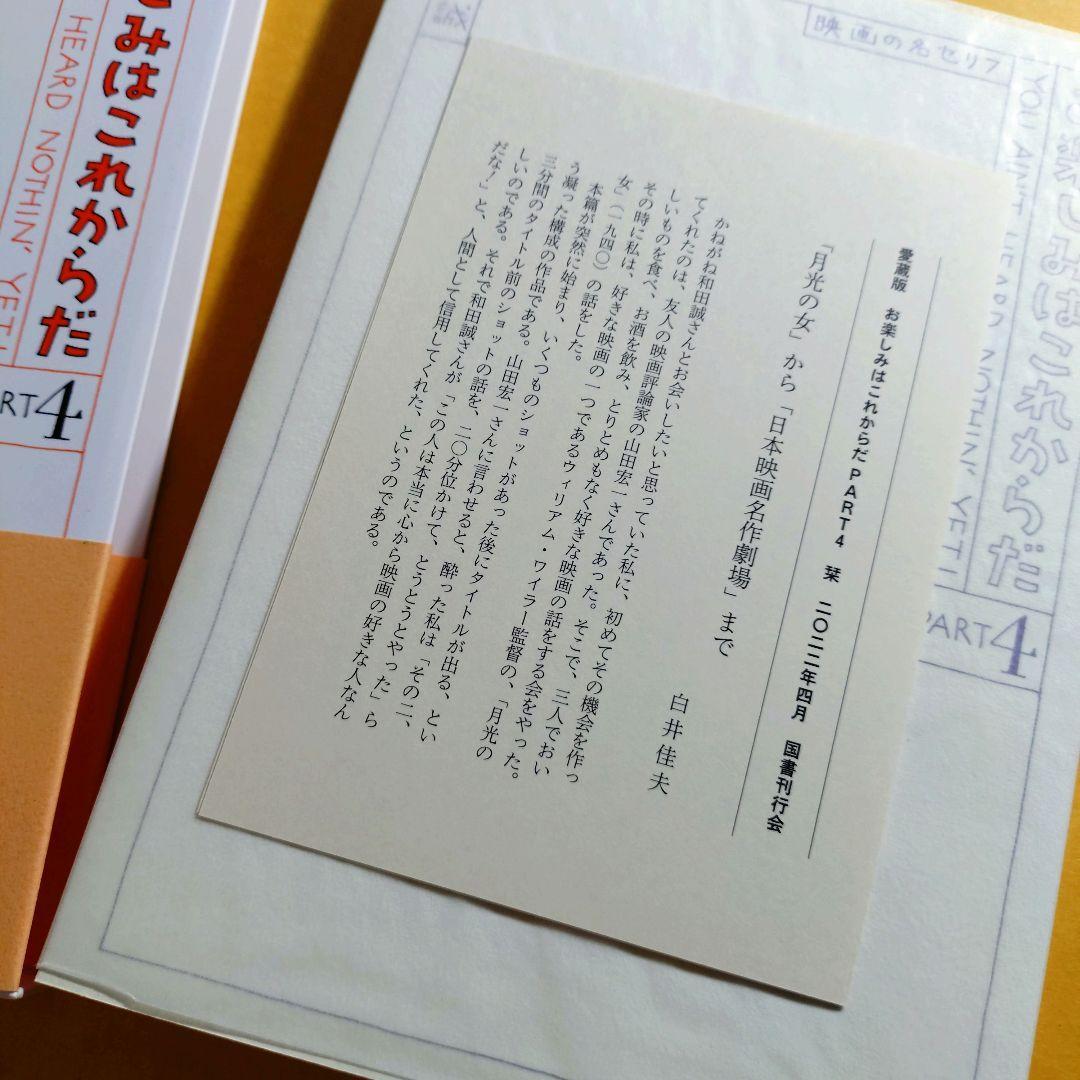 愛蔵版 お楽しみはこれからだ PART4 栞 二〇二二年四月 国書刊行会
「月光の女」から「日本映画名作劇場」まで
白井佳夫
かねがね和田誠さんとお会いしたいと思っていた私に、初めてその機会を作っ
てくれたのは、友人の映画評論家の山田宏一さんであった。そこで、三人でおい
しいものを食べ、お酒を飲み、とりとめもなく好きな映画の話をする会をやった。
その時に私は、好きな映画の一つであるウィリアム・ワイラー監督の、「月光の
女」(一九四〇)の話をした。
本篇が突然に始まり、いくつものショットがあった後にタイトルが出る、とい
う凝った構成の作品である。山田宏一さんに言わせると、酔った私は「その二、
三分間のタイトル前のショットの話を、二〇分位かけて、とうとうとやった」ら
しいのである。それで和田誠さんが「この人は本当に心から映画の好きな人なん
だな!」と、人間として信用してくれた、というのである。
映画の名セリフ
お楽しみはこれからだ
YOU AIN'T HEARD NOTHIN' YET!
PART4
しみはこれからだ
HEARD NOTHIN' YET!
ART4